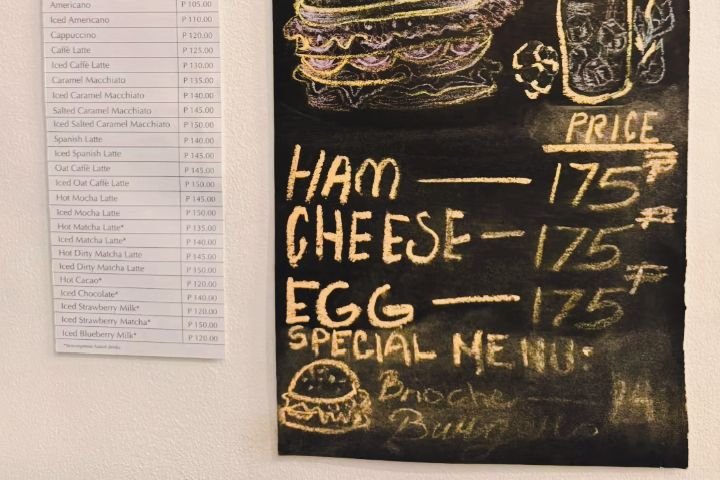 Americano P 105.00
Iced Americano P 110.00
Cappuccino P 120.00
Caffè Latte P 125.00
Iced Caffè Latte P 130.00
Caramel Macchiato P 135.00
Iced Caramel Macchiato P 140.00
Salted Caramel Macchiato P 145.00
Iced Salted Caramel Macchiato P 150.00
Spanish Latte P 140.00
Iced Spanish Latte P 145.00
Oat Caffè Latte P 145.00
Iced Oat Caffè Latte P 150.00
Hot Mocha Latte P 145.00
Iced Mocha Latte P 150.00
Hot Matcha Latte* P 135.00
Iced Matcha Latte* P 140.00
Hot Dirty Matcha Latte P 145.00
Iced Dirty Matcha Latte P 150.00
Hot Cacao* P 120.00
Iced Chocolate* P 140.00
Iced Strawberry Milk* P 120.00
Iced Strawberry Matcha* P 150.00
Iced Blueberry Milk* P 120.00
PRICE
HAM — 175 P
CHEESE — 175 P
EGG — 175 P
SPECIAL MENU:
Brioche